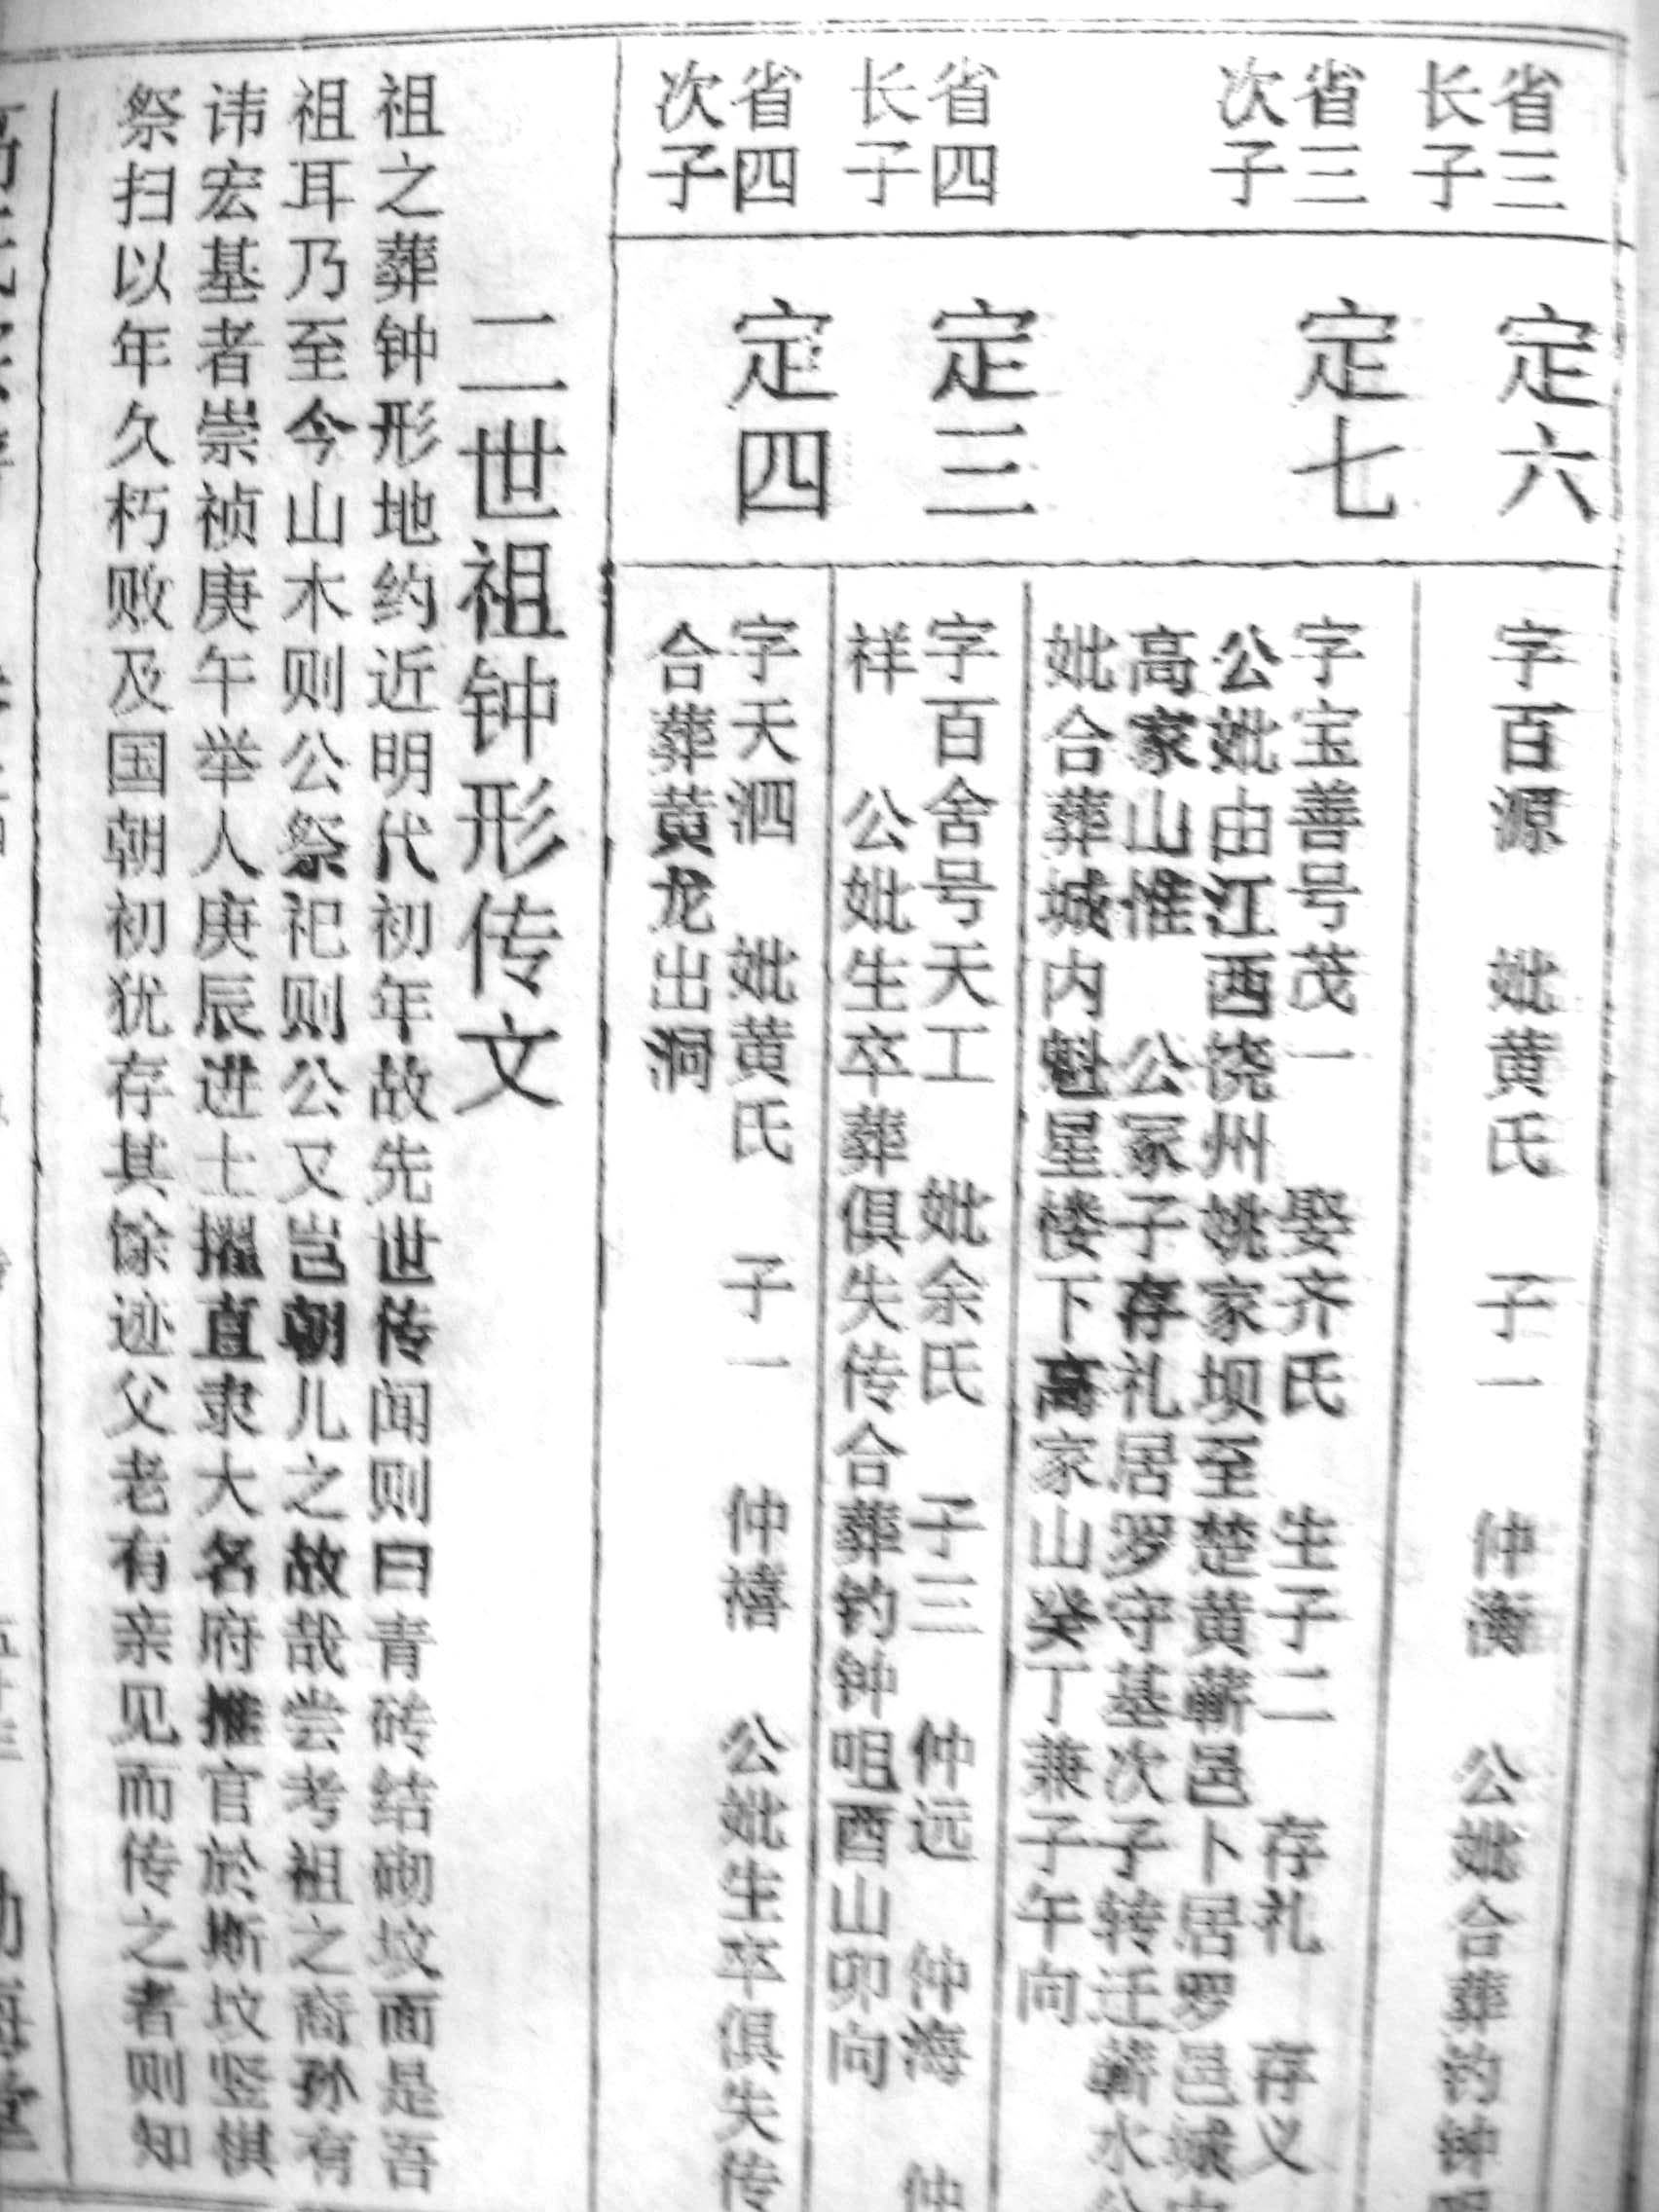 省三
长子
定六
字百源　妣黄氏　子一　仲衡　公妣合葬钓钟
省三
次子
定七
字宝善号茂一　娶齐氏　生子二　存礼　存义
公妣由江西饶州姚家坝至楚黄蕲邑卜居罗邑城
高家山惟　公冢子存礼居罗守基次子转迁蕲水
妣合葬城内魁星楼下高家山癸丁兼子午向
省四
长子
定三
字百舍号天工　妣余氏　子三　仲远　仲海　仲
祥　公妣生卒葬俱失传合葬钓钟咀酉山卯向
省四
次子
定四
字天泗　妣黄氏　子一　仲禧　公妣生卒俱失传
合葬黄龙出洞
二世祖钟形传文
祖之葬钟形地约近明代初年故先世传闻则曰青砖结砌坟面是吾
祖耳乃至今山木则公祭祀则公又岂朝儿之故哉尝考祖之裔孙有
讳宏基者崇祯庚午举人庚辰进士擢直隶大名府推官於斯坟竖棋
祭扫以年久朽败及国朝初犹存其馀迹父老有亲见而传之者则知